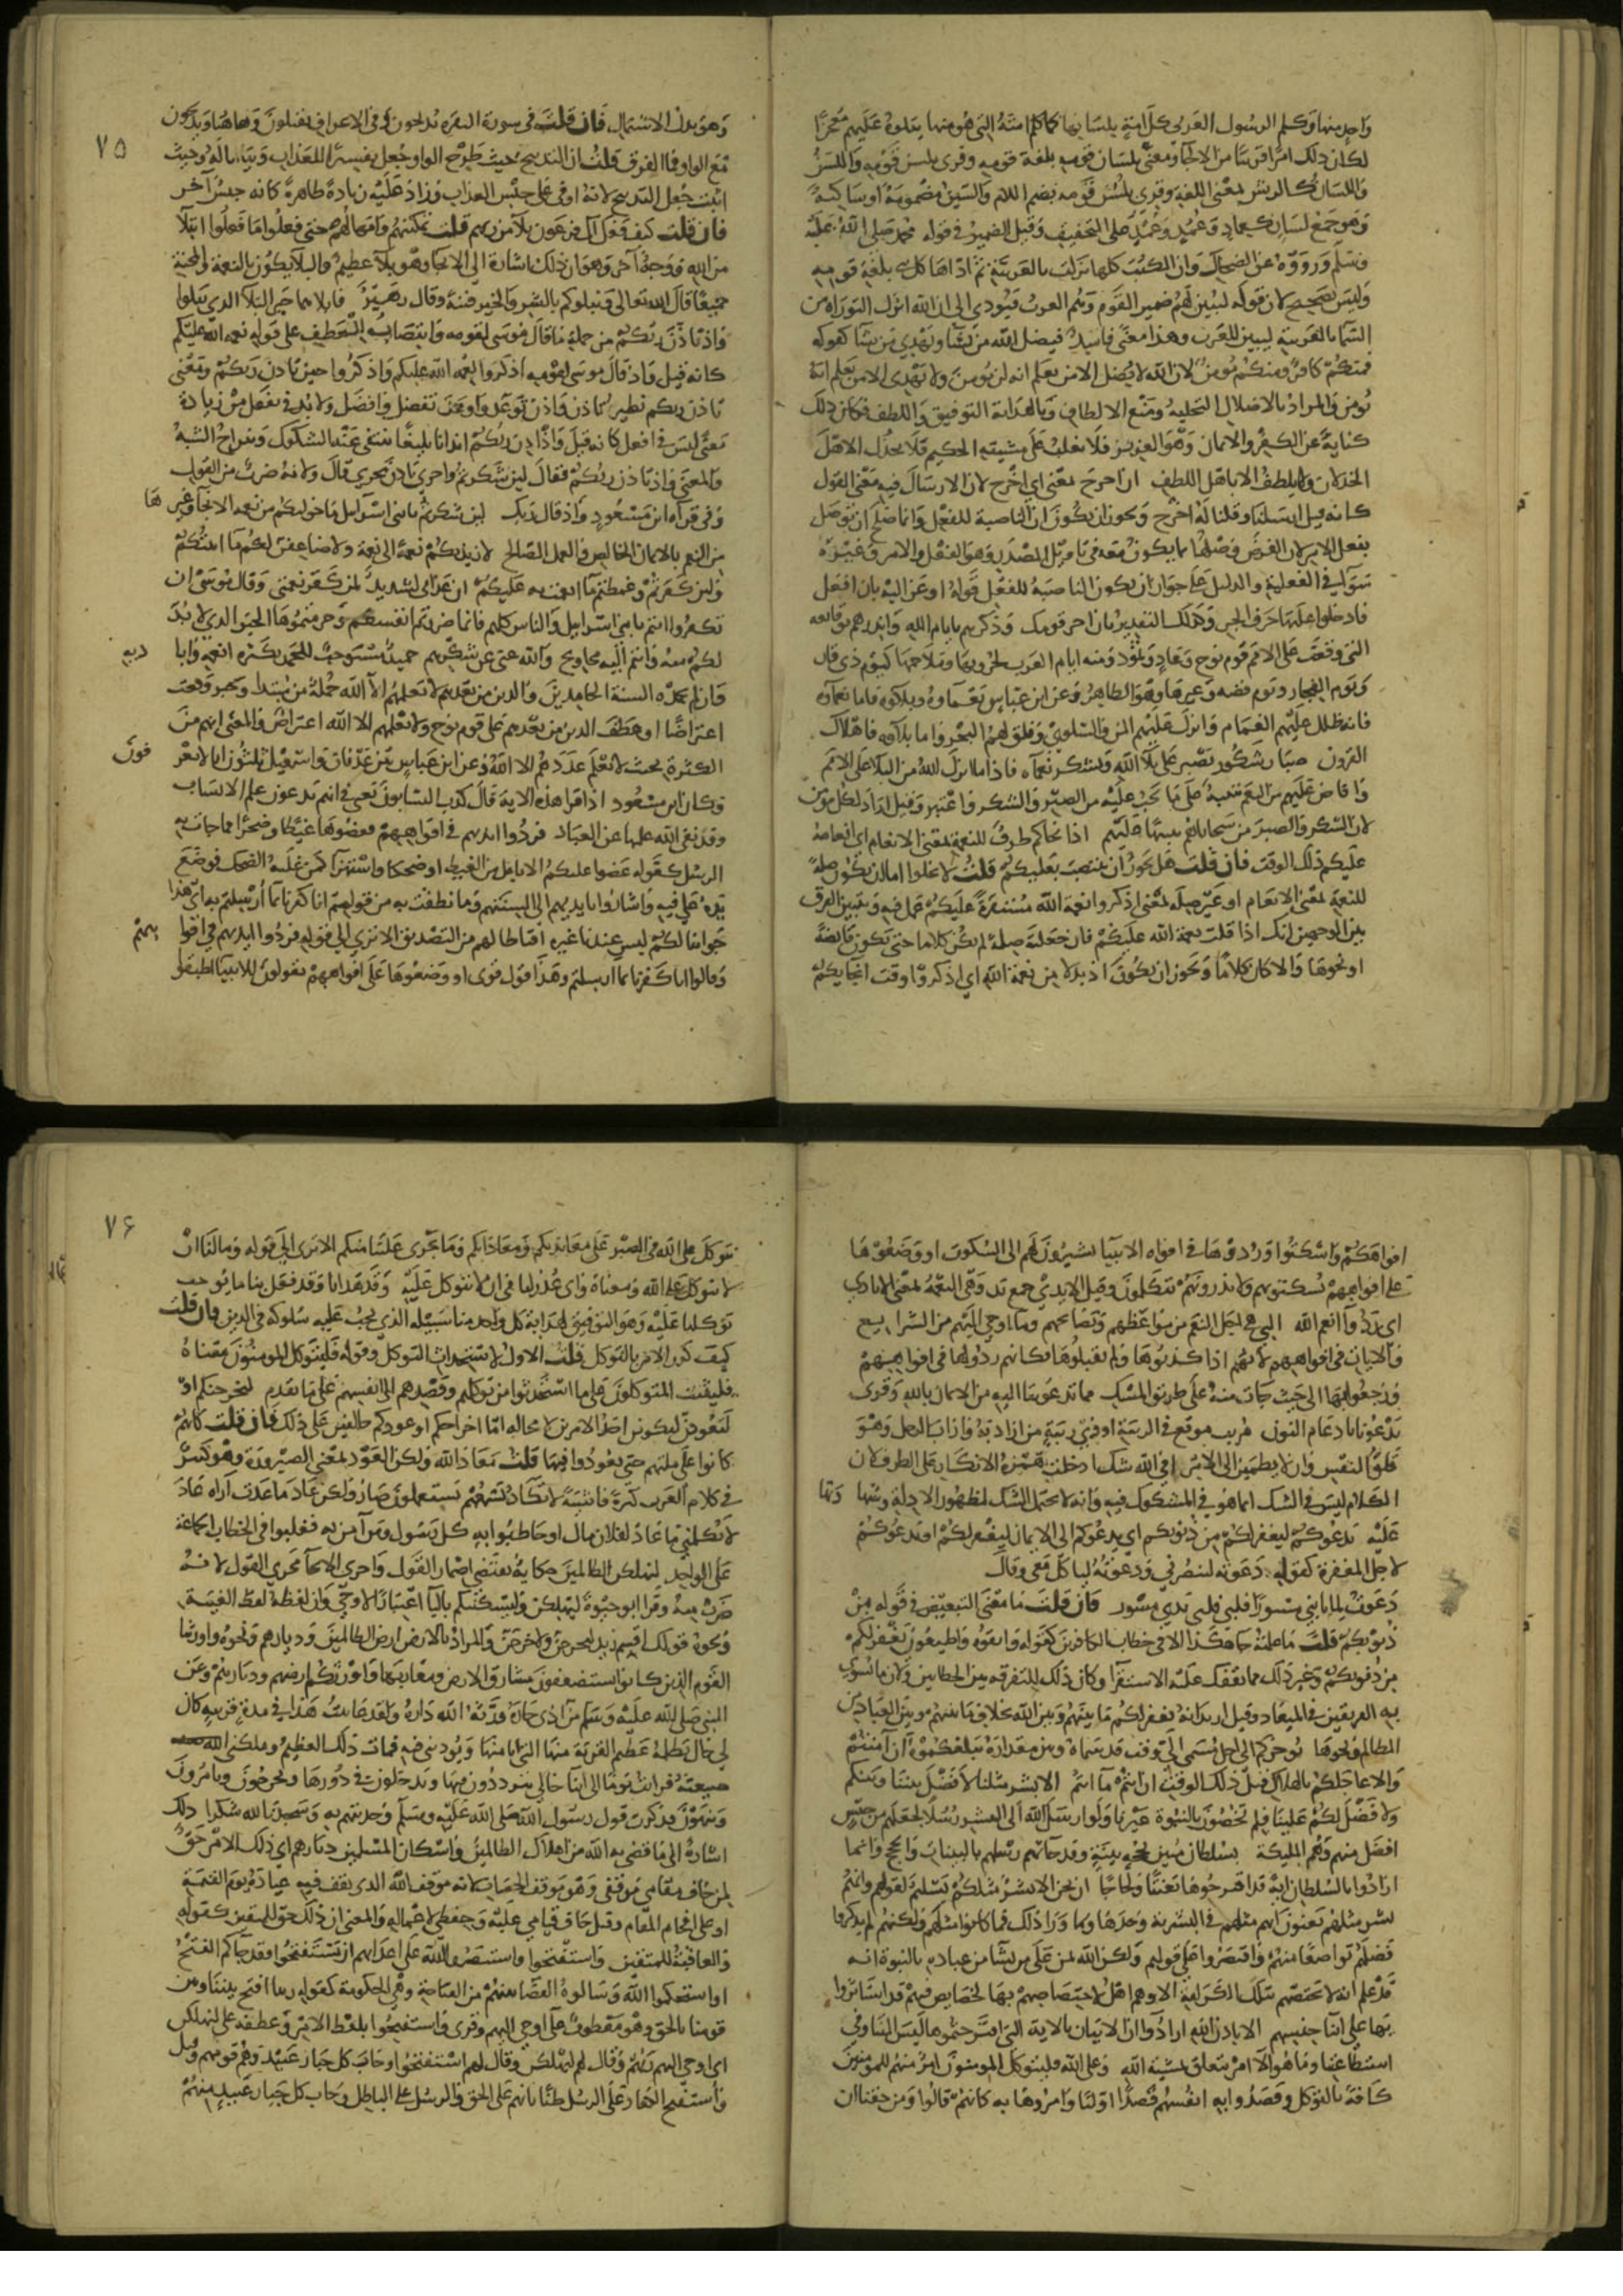 واحد منها وكلم الرسول العربي كل امة بلسانها كما كلم امته التي هو منها يتلوه عليهم معجزا
لكان ذلك امرا قريبا من الالجاء ومعنى بلسان قومه بلغة قومه وقرى بلسن قومه واللسن
واللسان كالريش والرياش بمعنى اللغة وقرى بلسن قومه بضم اللام والسين مضمومة او ساكنة
وهو جمع لسان كعماد وعمد وعمد على التخفيف وقيل الضمير في قوله لمحمد صلى الله عليه
وسلم ورووه عن الضحاك وان الكتب كلها نزلت بالعربية ثم اداها كل نبي بلغة قومه
وليس بصحيح لان قوله ليبين لهم ضمير القوم وهم العرب فيودي الى ان الله انزل التوراة من
السما بالعربية ليبين للعرب وهذا معنى فاسد فيضل الله من يشا ويهدي من يشا كقوله
فمنكم كافر ومنكم مومن لان الله لا يضل الا من يعلم انه لن يومن ولا يهدي الا من يعلم انه
يومن والمراد بالاضلال التخلية ومنع الالطاف وبالهداية التوفيق واللطف فكان ذلك
كناية عن الكفر والايمان وهو العزيز فلا يغلب على مشيته الحكيم فلا يخذل الا اهل
الخذلان ولا يلطف الا باهل اللطف ان اخرج بمعنى اي اخرج لان الارسال فيه معنى القول
كانه قيل ارسلنا وقلنا له اخرج ويجوز ان يكون ان الناصبة للفعل وانما صلح ان توصل
بفعل الامر لان الغرض وصلها بما يكون معه في تاويل المصدر وهو الفعل والامر وغيره
سوا في الفعلية والدليل على جواز ان يكون الناصبة للفعل قولهم اوعز اليه بان افعل
فادخلوا عليها حرف الجر وكذلك التقدير بان اخرج قومك وذكرهم بايام الله وانذرهم بوقايعه
التي وقعت على الامم قوم نوح وعاد وثمود ومنه ايام العرب لحروبها وملاحمها كيوم ذي قار
ويوم الفجار ويوم فضة وغيرها وهو الظاهر وعن ابن عباس نعماوه وبلاوه فاما نعماوه
فانه ظلل عليهم الغمام وانزل عليهم المن والسلوى وفلق لهم البحر واما بلاوه فاهلاك
القرون صبار شكور يصبر على بلا الله ويشكر نعماه فاذا ما انزل الله من البلا على الامم
وافاض عليهم من النعم تنبه على ما يجب عليه من الصبر والشكر واعتبر وقيل اراد لكل مومن
لان الشكر والصبر من سجاياهم تنبيها عليهم اذ انجاكم ظرف للنعمة بمعنى الانعام اي انعامه
عليكم ذلك الوقت فان قلت هل يجوز ان ينتصب بعليكم قلت لا يخلوا اما ان يكون صلة
للنعمة بمعنى الانعام او غير صلة لمعنى اذكروا نعمة الله مستقرة عليكم عمل فيه ويتبين الفرق
بين الوجهين انك اذا قلت نعمة الله عليكم فان جعلته صلة لم يكن كلاما حتى تكون فايضة
او نحوها والا كان كلاما ويجوز ان يكون اذ بدلا من نعمة الله اي اذكروا وقت انجايكم
٧٥
وهو بدل الاشتمال فان قلت في سورة البقرة يذبحون وفي الاعراف يقتلون وهاهنا ويذبحون
مع الواو فما الفرق قلت ان التذبيح حيث طرح الواو جعل تفسيرا للعذاب وبيانا له وحيث
اثبت جعل التذبيح لانه اوفى على جنس العذاب وزاد عليه زيادة ظاهرة كانه جنس آخر
فان قلت كيف فعل آل فرعون بلا من ربهم قلت تمكينهم وامهالهم حتى فعلوا ما فعلوا ابتلا
من الله ووجه آخر وهو ان ذلك اشارة الى الانجا وهو بلا عظيم والبلا يكون بالنعمة والمحنة
جميعا قال الله تعالى ونبلوكم بالشر والخير فتنة وقال زهير فابلاهما خير البلا الذي يبلوا
واذ تاذن ربكم من جملة ما قال موسى لقومه وانتصابه للعطف على قوله نعمة الله عليكم
كانه قيل واذ قال موسى لقومه اذكروا نعمة الله عليكم واذكروا حين تاذن ربكم ومعنى
تاذن ربكم نظير تاذن واذن توعد واوعد تفضل وافضل ولا بد في تفعل من زيادة
معنى ليس في افعل كانه قيل واذ اذن ربكم ايذانا بليغا ينتفى عنده الشكوك وينزاح الشبه
والمعنى واذ تاذن ربكم فقال لين شكرتم واجرى تاذن مجرى قال ولانه ضرب من القول
وفي قراة ابن مسعود واذ قال ربك لين شكرتم يا بني اسرايل ما خولتكم من نعمة الانجا وغيرها
من النعم بالايمان الخالص والعمل الصالح لازيدنكم نعمة الى نعمة ولاضاعفن لكم ما اتيتكم
ولين كفرتم وغمطتم ما انعمت به عليكم ان عذابي لشديد لمن كفر نعمتي وقال موسى ان
تكفروا انتم يا بني اسرايل والناس كلهم فانما ضررتم انفسكم وحرمتموها الخير الذي لا بد
لكم منه وانتم اليه محاويج والله غني عن شكركم حميد مستوجب للحمد بكثرة انعمه واياديه
وان لم يحمده السنة الحامدين والذين من بعدهم لا يعلمهم الا الله جملة من مبتدا وخبر وقعت
اعتراضا او عطف الذين من بعدهم على قوم نوح ولا يعلمهم الا الله اعتراض والمعنى انهم من
الكثرة بحيث لا يعلم عددهم الا الله وعن ابن عباس بين عدنان واسمعيل ثلثون ابا لا يعرفون
وكان ابن مسعود اذا قرا هذه الاية قال كذب النسابون يعني انهم يدعون علم الانساب
وقد نفى الله علمها عن العباد فردوا ايديهم في افواههم فعضوها غيظا وضجرا مما جات به
الرسل كقوله عضوا عليكم الانامل من الغيظ او ضحكا واستهزا كمن غلبه الضحك فوضع
يده على فيه واشاروا بايديهم الى السنتهم وما نطقت به من قولهم انا كفرنا بما ارسلتم به اي هذا
جوابنا لكم ليس عندنا غيره اقناطا لهم من التصديق الا ترى الى قوله فردوا ايديهم في افواههم
وقالوا انا كفرنا بما ارسلتم وهذا قول قوى او وضعوها على افواههم يقولون للانبيا اطبقوا
افواهكم واسكتوا وردوها في افواه الانبيا يشيرون لهم الى السكوت او وضعوها
على افواههم يسكتونهم ولا يذرونهم يتكلمون وقيل الايدي جمع يد وهي النعمة بمعنى الايادي
اي ردوا انعم الله التي هي اجل النعم من مواعظهم ونصايحهم وما اوحي اليهم من الشرايع
والايات في افواههم لانهم اذا كذبوها ولم يقبلوها فكانهم ردوها في افواههم
ورجعوها الى حيث جات منه على طريق المثل مما تدعوننا اليه من الايمان بالله وقرى
تدعونا بادغام النون مريب موقع في الريبة او ذي ريبة من ارابه وارابـ الرجل وهو
قلق النفس وان لا يطمين الى الامر افي الله شك ادخلت همزة الانكار على الظرف لان
الكلام ليس في الشك انما هو في المشكوك فيه وانه لا يحتمل الشك لظهور الادلة وشهادتها
عليه يدعوكم ليغفر لكم من ذنوبكم اي يدعوكم الى الايمان ليغفر لكم او يدعوكم
لاجل المغفرة كقوله دعوته لينصرني ودعوته ليا كل معي وقال
دعوت لما نابني مسورا فلبى فلبي يدي مسور فان قلت ما معنى التبعيض في قوله من
ذنوبكم قلت ما علمته جا هكذا الا في خطاب الكافرين كقوله واتقوه واطيعون يغفر لكم
من ذنوبكم وغير ذلك مما يقفك عليه الاستقرا وكان ذلك للتفرقة بين الخطابين ولان لا يسوي
بين الفريقين في الميعاد وقيل اريد انه يغفر لكم ما بينهم وبين الله بخلاف ما بينهم وبين العباد من
المظالم ونحوها يوخركم الى اجل مسمى الى وقت قد سماه وبين مقداره يبلغكموه ان آمنتم
والا عاجلكم بالهلاك قبل ذلك الوقت ان انتم ما انتم الا بشر مثلنا لا فضل بيننا وبينكم
ولا فضل لكم علينا فلم تخصون بالنبوة غيرنا ولو ارسل الله الى البشر رسلا لجعلهم من جنس
افضل منهم وهم المليكة بسلطان مبين بحجة بينة وقد جاتهم رسلهم بالبينات والحجج وانما
ارادوا بالسلطان اية قد اقترحوها تعنتا ولجاجا ان نحن الا بشر مثلكم تسليم لقولهم وانهم
بشر مثلهم يعنون انهم مثلهم في البشرية وحدها وما ورا ذلك فما كانوا مثلهم ولكنهم لم يذكروا
فضلهم تواضعا منهم واقتصروا على قولهم ولكن الله يمن على من يشا من عباده بالنبوة انه
قد علم انه لا يختصهم بتلك الكرامة الا وهم اهل لاختصاصهم بها لخصايص فيهم قد استاثروا
بها على ابنا جنسهم الا باذن الله ارادوا ان الاتيان بالاية التي اقترحتموها ليس الينا ولا في
استطاعتنا وما هو الا امر يتعلق بمشية الله وعلى الله فليتوكل المومنون امر منهم للمومنين
كافة بالتوكل وقصدوا به انفسهم قصدا اوليا وامروها به كانهم قالوا ومن حقنا ان
٧٦
نتوكل على الله في الصبر على معاندتكم ومعاداتكم وما يجري علينا منكم الا ترى الى قوله وما لنا ان
لا نتوكل على الله ومعناه واي عذر لنا في ان لا نتوكل عليه وقد هدانا وقد فعل بنا ما يوجب
توكلنا عليه وهو التوفيق لهداية كل واحد منا سبيله الذي يجب عليه سلوكه في الدين فان قلت
كيف كرر الامر بالتوكل قلت الاول لاستحداث التوكل وقوله فليتوكل المومنون معناه
فليثبت المتوكلون على ما استحدثوا من توكلهم وقصدهم الى انفسهم على ما تقدم لنخرجنكم او
لتعودن ليكونن احد الامرين لا محالة اما اخراجكم او عودكم حالفين على ذلك فان قلت كانهم
كانوا على ملتهم حتى يعودوا فيها قلت معاذ الله ولكن العود بمعنى الصيرورة وهو كثير
في كلام العرب كثرة فاشية لا تكاد تسمعهم يستعملون صار ولكن عاد ما عدت اراه عاد
لا يكلمني ما عاد لفلان مال او خاطبوا به كل رسول ومن آمن به فغلبوا في الخطاب الجماعة
على الواحد لنهلكن الظالمين حكاية تقتضي اضمار القول واجرى الايحا مجرى القول لانه
ضرب منه وقرا ابو حيوة ليهلكن وليسكننكم باليا اعتبارا لاوحى وان لفظه لفظ الغيبة
ونحوه قولك اقسم زيد ليخرجن ولاخرجن والمراد بالارض ارض الظالمين وديارهم ونحوه واورثنا
القوم الذين كانوا يستضعفون مشارق الارض ومغاربها واورثكم ارضهم وديارهم وعن
النبي صلى الله عليه وسلم من اذى جاره ورثه الله داره ولقد عاينت هذا في مدة قريبة كان
لي خال يظلمه عظيم القرية منها التي انا منها ويوذيني فيه فمات ذلك العظيم وملكني الله
ضيعته فرايت يوما الى ابنا خالي يترددون فيها ويدخلون في دورها ويخرجون ويامرون
وينهون فذكرت قول رسول الله صلى الله عليه وسلم وحدثتهم به وسجدنا لله شكرا ذلك
اشارة الى ما قضى به الله من اهلاك الظالمين واسكان المسلمين ديارهم اي ذلك الامر حق
لمن خاف مقامي موقفي وهو موقف الحساب لانه موقف الله الذي يقف فيه عباده يوم القيمة
او على اقحام المقام وقيل خاف قيامي عليه وحفظي لاعماله والمعنى ان ذلك حق للمتقين كقوله
والعاقبة للمتقين واستفتحوا واستنصروا الله على اعدايهم ان تستفتحوا فقد جاكم الفتح
او استحكموا الله وسالوه القضا بينهم من الفتاحة وهي الحكومة كقوله ربنا افتح بيننا وبين
قومنا بالحق وهو معطوف على اوحى اليهم وقرى واستفتحوا بلفظ الامر وعطفه على لنهلكن
اي اوحى اليهم ربهم وقال لهم لنهلكن وقال لهم استفتحوا وخاب كل جبار عنيد وهم قومهم وقيل
واستفتح الكفار على الرسل ظنا بانهم على الحق والرسل على الباطل وخاب كل جبار عنيد منهم